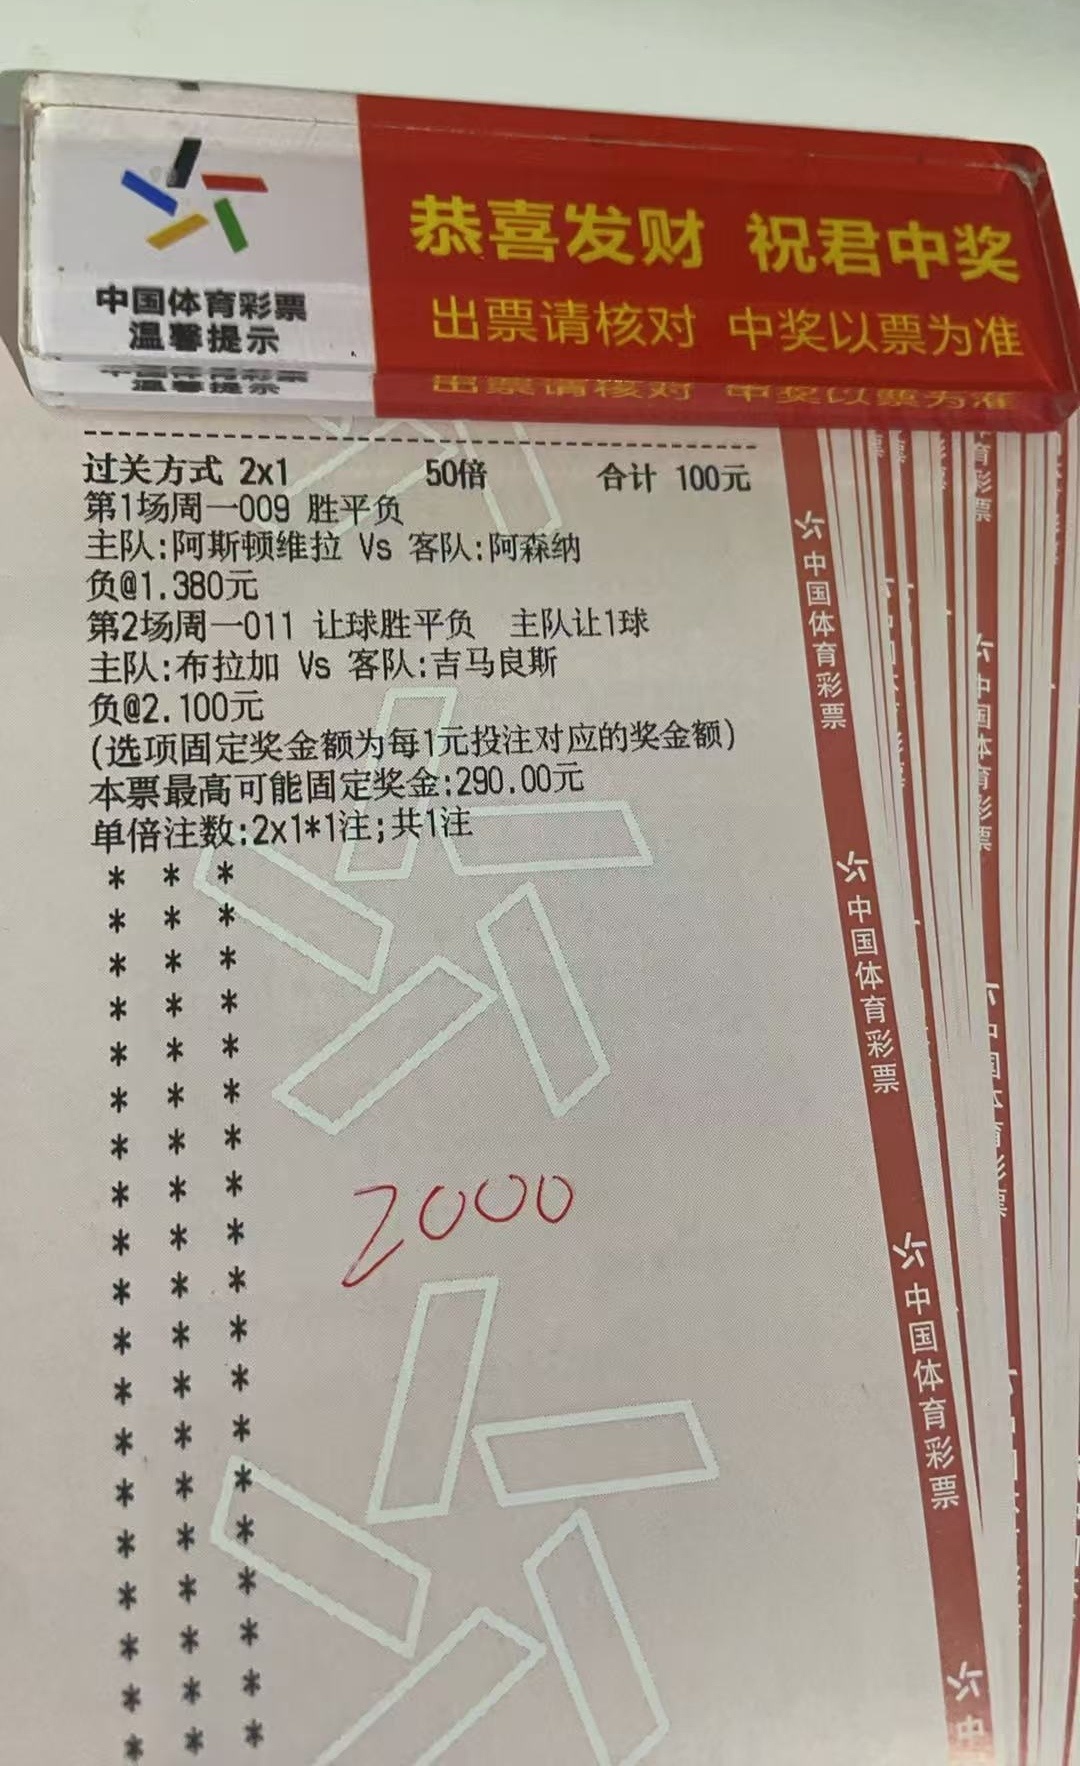 恭喜发财 祝君中奖
出票请核对 中奖以票为准
中国体育彩票
温馨提示
过关方式 2x1 50倍 合计 100元
第1场周一009 胜平负
主队:阿斯顿维拉 Vs 客队:阿森纳
负@1.380元
第2场周一011 让球胜平负 主队让1球
主队:布拉加 Vs 客队:吉马良斯
负@2.100元
(选项固定奖金额为每1元投注对应的奖金额)
本票最高可能固定奖金:290.00元
单倍注数:2x1*1注;共1注
* * *
* * *
* * *
* * *
* * *
* * *
* * *
* * *
* * *
* * *
* * *
* * *
* * *
* * *
* * *
* * *
* * *
* * *
* * *
2000
中国体育彩票
中国体育彩票
中国体育彩票
中